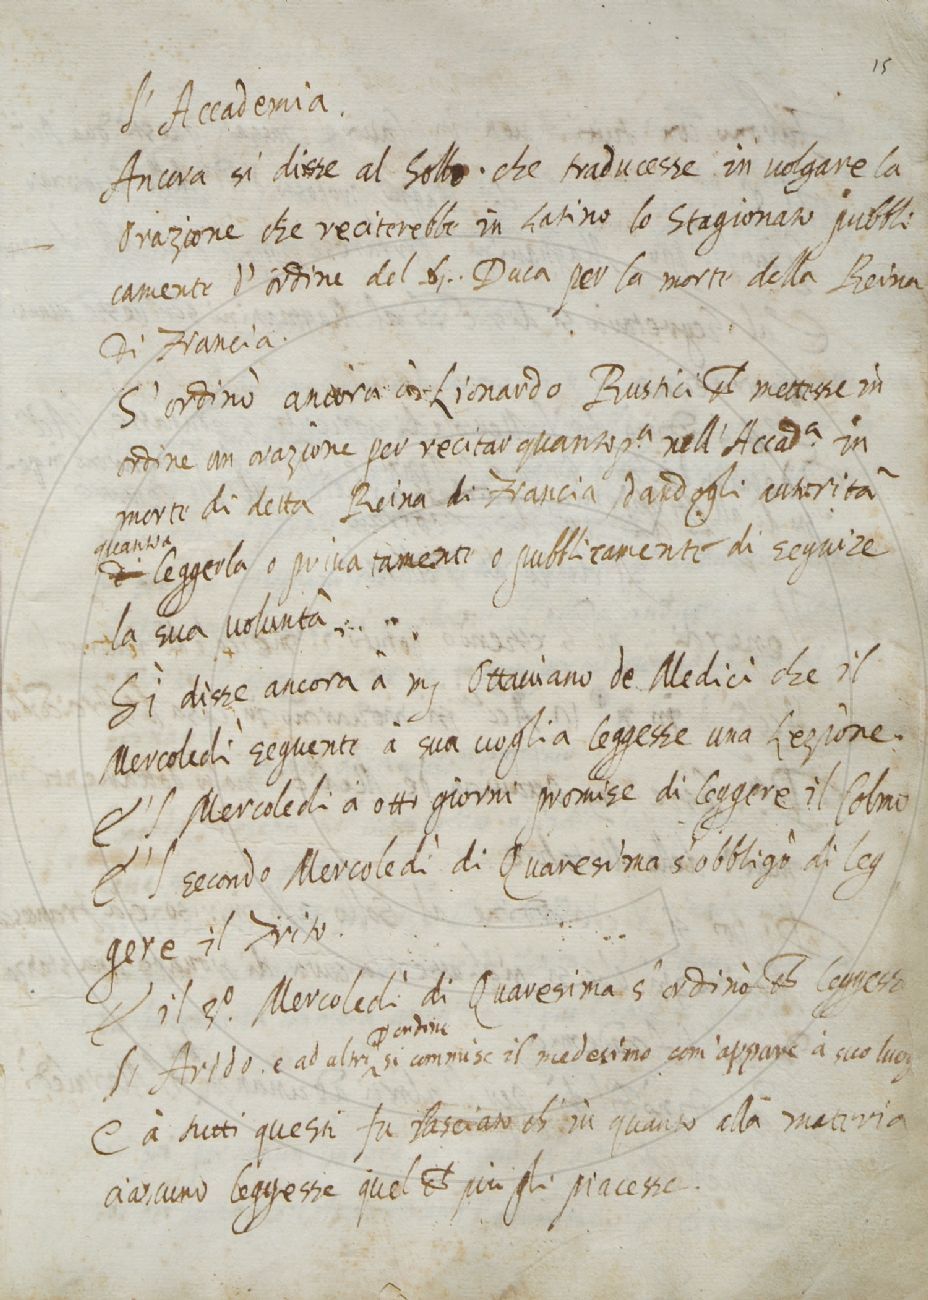 15
l' Accademia.
Ancora si disse al Sollo. che traducesse in volgare la
Orazione che reciterebbe in Latino lo Stagionato pubbli
camente d' ordine del Duca per la morte della Reina
di Francia.
S' ordinò ancora à Lionardo Rustici mettesse in
ordine un orazione per recitar quanto pª nell' Accadª in
morte di detta Reina di Francia dandogli autorità
quanto a
leggerla o privatamente o pubblicamente di seguire
la sua voluntà
Si disse ancora à mʒ Ottaviano de Medici che il
Mercoledì seguente à sua voglia leggesse una Lezione.
E 'l Mercoledì à otto giorni promise di leggere il Colmo
E 'l secondo Mercoledì di Quaresima s' obbligò di leg
gere il Trito.
E il 3º. Mercoledì di Quaresima s' ordinò leggesse
p ordine
l' Arido. e ad altri si commise il medesimo com' appare à suo luog
E à tutti questi fu lasciato ch' in quanto alla materia
ciascuno leggesse quel più gli piacesse.